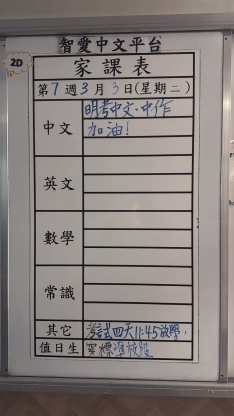 智愛中文平台
2D
家課表
第7週3月3日(星期二)
中文
明考中文、中作
加油!
英文
數學
常識
其它
考試四天11:45放學,
值日生